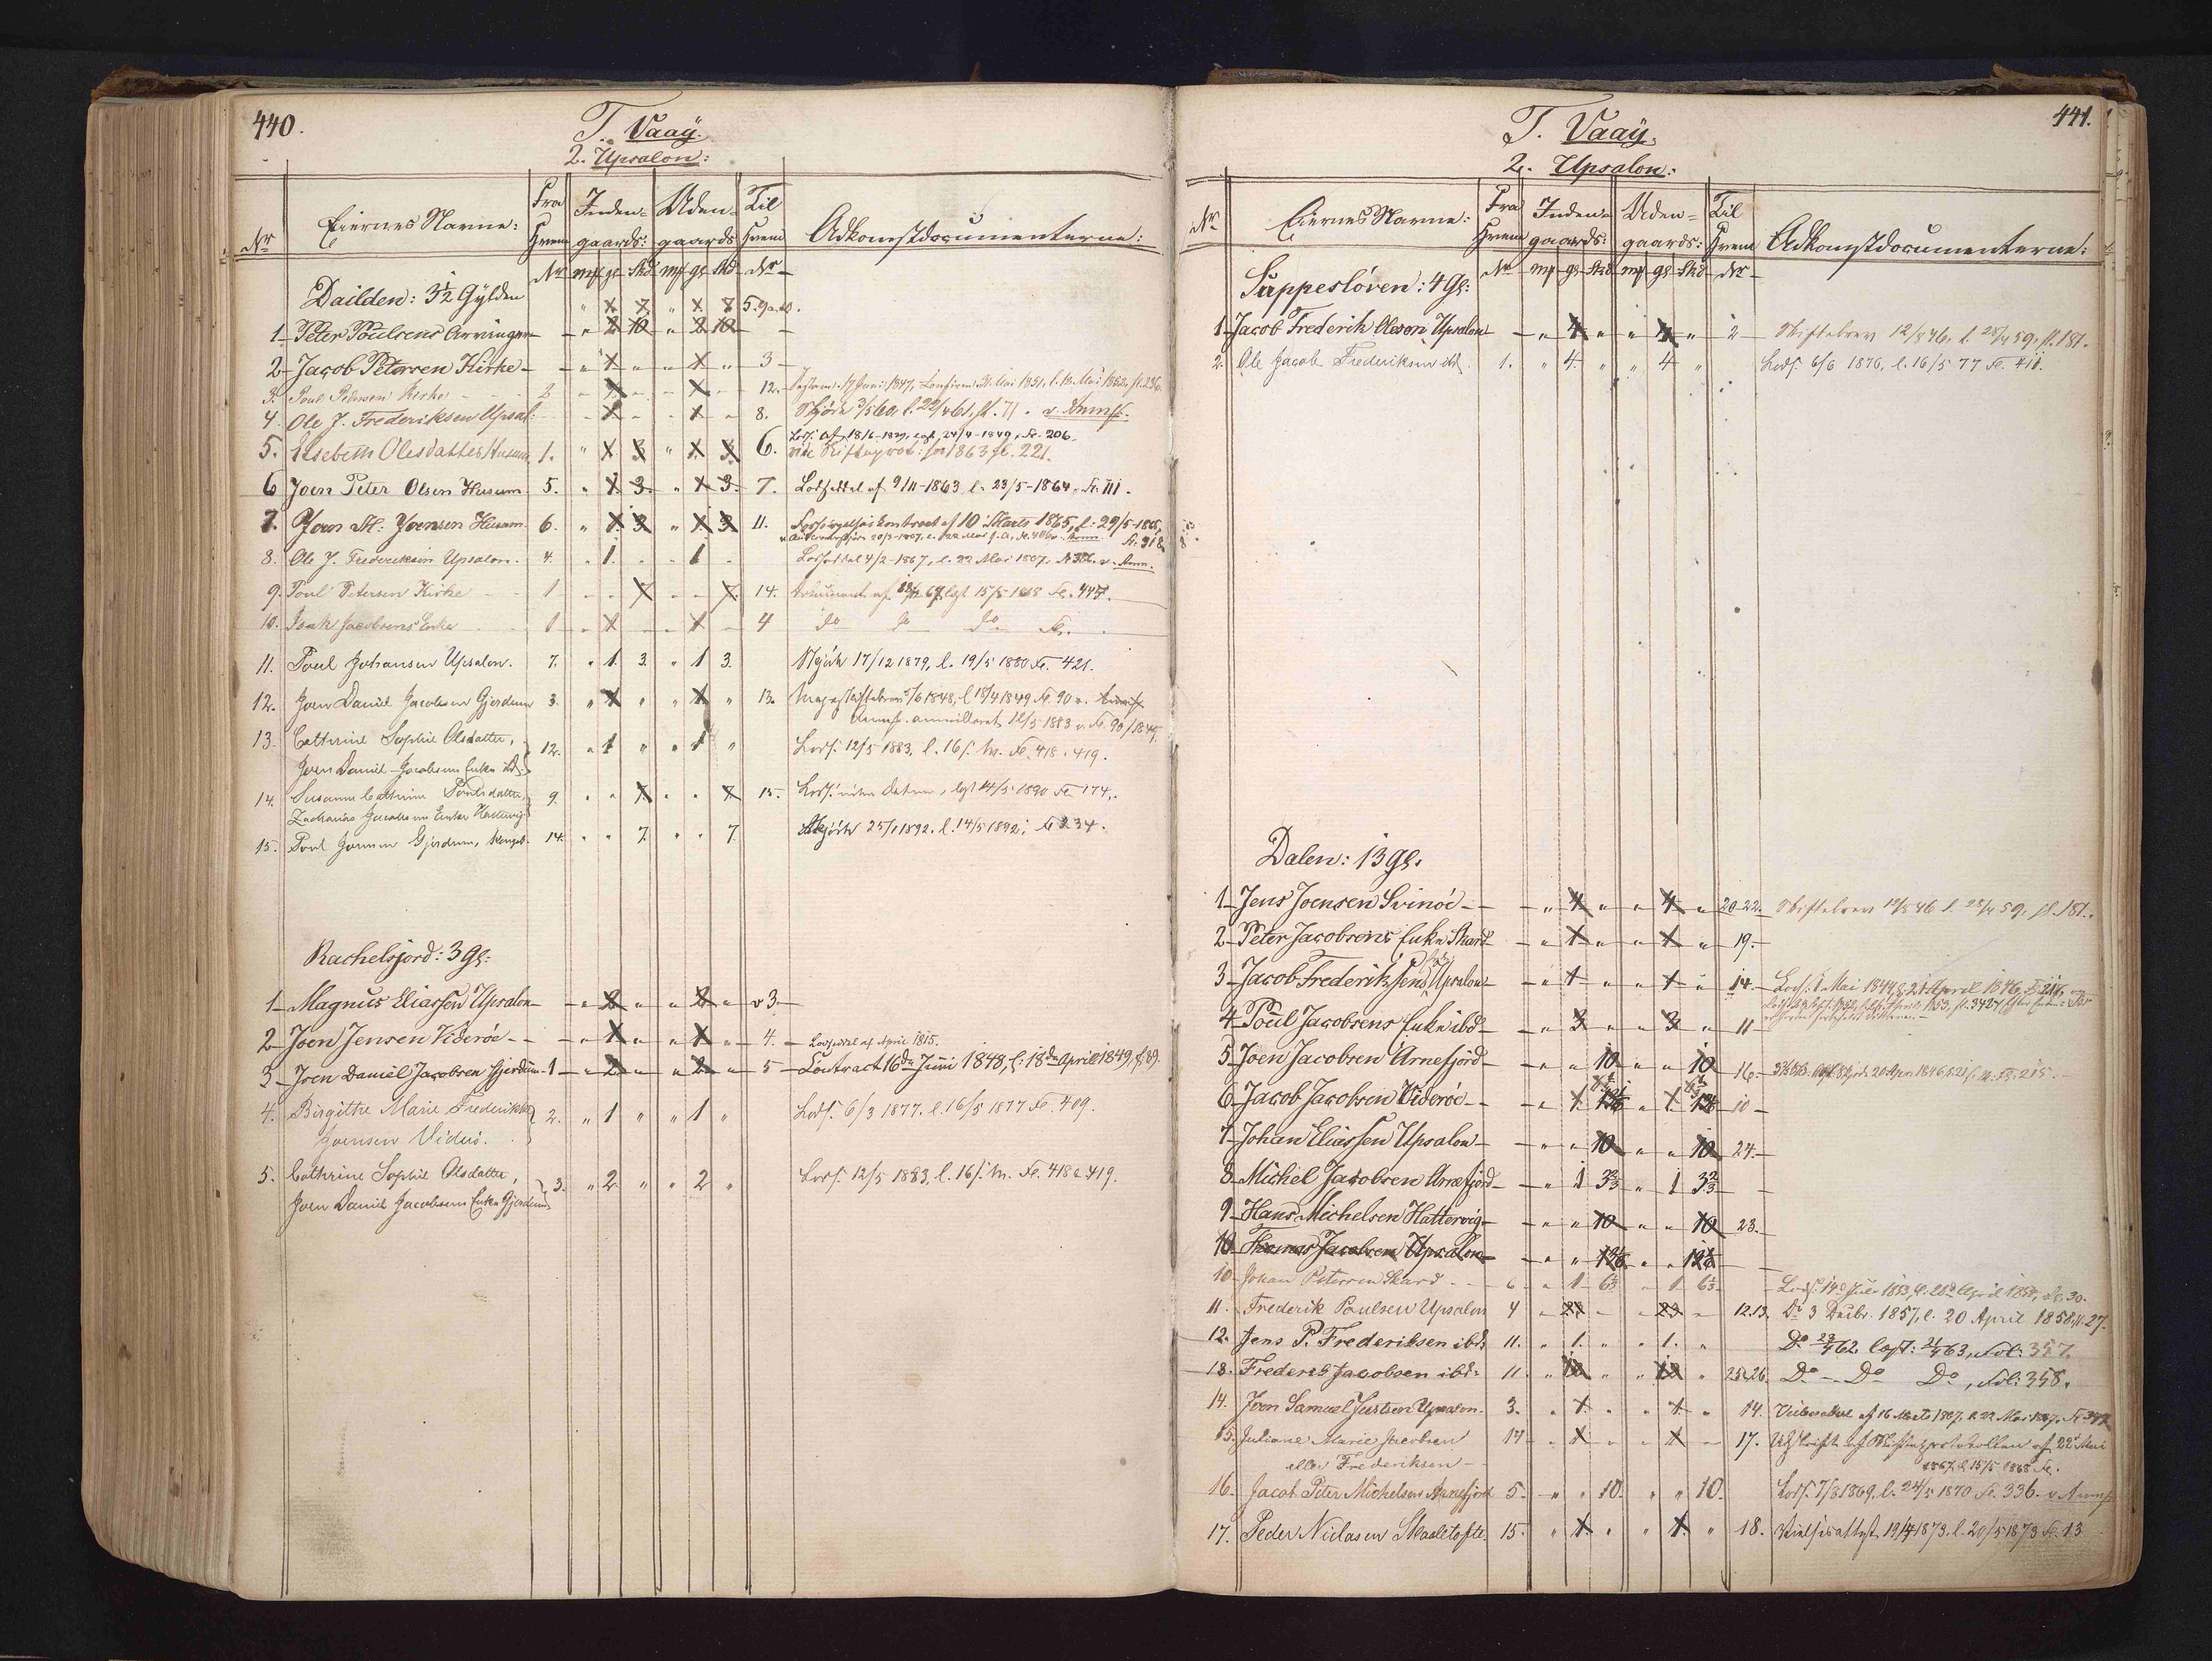 440.
T. Vaag.
2. Upsalon:
Nr Eiernes Navne: Fra Hvem Nr Inden-gaards: mk gl Skd Uden-gaards mk gl Skd Til Hvem Nr Adkomstdocumenterne:
Dailden: 3½ Gylden
" 1 7 " 1 7 5. 9a.10.
1 Peter Poulsens Arvinger " 2 10 " 2 10
2 Jacob Petersen Kirke " 1 " " 1 " 3
3. Poul Pedersen Kirke 2 1 1 12. 17 Juni 1847, Confirm. 31 Mai 1851, l. 12 Mai 1852, fl. 236.
4 Ole J. Frederiksen Upsal. 1 1 8. Skjøde 3/5 60, l. 22/4 61, fl. 71. v. Anmk.
5. Elsebeth Olesdatter Husum 1. " 1 3 " 1 3 6. Lods. 18/6-1839, lgt. 24/4-1849, Fo. 206.
vide Skifteprot: for 1863 fl. 221.
6 Joen Peter Olsen Husum 5. " 1 3. " 1 3. 7. Lodseddel af 9/11-1863 l. 23/5-1864, Fo. 111.
7. Joen M: Joensen Husum. 6. " 1 3 " 1 3 11. Forsørgelseskontract af 10 Marts 1865, l: 29/5-1866, Fo. 318
8. Ole J. Frederiksen Upsalon. 4. " 1. " " 1 " Lodseddel 4/2-1867, l. 22 Mai 1867, Fo 386. v. Anm.
9. Poul Petersen Kirke 1 7 7. 14. Document af 67 lgt 15/5 1868 Fo. 447.
10. Isak Jacobsens Enke 1 1 1 4 do do do Fo.
11. Poul Johansen Upsalon. 7. " 1. 3. " 1 3. Skjøde 17/12 1879, l. 19/5 1880 Fo. 421.
12. Joen Daniel Jacobsen Gjerdum 3. " 1 " " 1 " 13. Mageskiftebrev 5/6 1848, l 18/4 1849 Fo. 90 v. Anmk.
Anmk. annulleret 12/5 1883 v. Fo. 90/1849.
13. Cathrine Sophie Olsdatter,
Joen Daniel Jacobsens Enke ibd. 12. " 1 " " 1 " Lods. 12/5 1883, l. 16/s. M. Fo. 418 & 419.
14. Susanne Cathrine Poulsdatter,
Zacharias Jacobsens Enke Hattervig 9. " " 7. " " 7 15. Lods. uden Datum, lgt 14/5 1890 Fo 174.
15. Poul Joensen Gjerdum, 14. " " 7. " " 7. Skjøde 25/1 1892. l. 14/5 1892, Fo 234.
Rachelsjord: 3 gl:
1 Magnus Eliassen Upsalon " 2 " " 2 " v 3
2 Joen Jensen Viderøe " 1 " " 1 " 4. Lodseddel af April 1815.
3 Joen Daniel Jacobsen Gjerdum 1 " 2 " " 2 " 5 Contract 16de Juni 1848, l. 18de April 1849, f. 89.
4. Birgithe Marie Frederikke
Joensen Viderø. 2. " 1 " " 1 " Lods. 6/3 1877. l. 16/5 1877 Fo. 409.
5. Cathrine Sophie Olsdatter,
Joen Daniel Jacobsens Enke Gjerdum 3. " 2 " " 2 " Lods. 12/5 1883, l. 16/s. M. Fo. 418 & 419.
441.
T. Vaag.
2. Upsalon:
Nr. Eiernes Navne: Fra Hvem Nr Inden-gaards: mk gl Skd Uden-gaards: mk gl Skd Til Hvem Nr Adkomstdocumenterne:
Suppesløven: 4 gl:
1 Jacob Frederik Oleson Upsalon " 4 " " 4 " 2 Skiftebrev 12/8 46, l. 28/4 59, fl. 181.
2. Ole Jacob Frederiksen ibd. 1. " 4 " " 4 " Lods. 6/6 1876, l. 16/5 77 Fo. 411.
Dalen: 13 gl.
1 Jens Joensen Svinøe " 4 " " 4 " 20-22. Skiftebrev 12/8 46 l. 28/4 59, fl. 181.
2 Peter Jacobsens Enke Skard " 1 " " 1 " 19.
3 Jacob Frederiksens Upsalon " 1 " " 1 " 14. Lods. 1 Mai 1844, l. 21 April 1846, Fo. 216, og
4 Poul Jacobsens Enke ibd " 3 " " 3 " 11
5 Joen Jacobsen Arnefjord " " 10 " " 10 16. 20 Apr. 1846, 215.
6 Jacob Jacobsen Viderøe " 1 " 1 10
7 Johan Eliassen Upsalon " " 10 " " 10 24.
8 Michel Jacobsen Arnefjord " 1 3⅔ " 1 3⅔
9 Hans Michelsen Hattervig " " 10 " " 10 23.
10 Thomas Jacobsen Upsalon
10 Johan Petersen Skard 6 " 1 6⅓ 1 6⅓ Lods. 14de Juli 1853, l. 20de April 1854, Fo. 30.
11. Frederik Poulsen Upsalon 4 12.13. Do 3 Decbr. 1857, l. 20 April 1858, fl. 27.
12. Jens P. Frederiksen ibd. 11. " 1. " " 1. " Do 23/4 62. lgst: 21/4 63, Fol: 357.
13. Frederik Jacobsen ibd. 11. 25.26. Do Do Do, Fol: 358.
14. Joen Samuel Justsen Upsalon. 3. " 1 " " 1 " 14. af 16 Marts 1867, l. 22 Mai 1867, Fo 342
15. Juliane Marie Jacobsen
eller Frederiksen 14 1 1 17. Udskrift af Skifteprotocollen af 22 Mai
1867, l. 15/5 1868 Fo.
16. Jacob Peter Michelsen Arnefjord 5. " " 10. " " 10. Lods. 7/3 1869, l. 24/5 1870 Fo. 336. v. Anmk.
17. Peder Niclasen Skaaletofte. 15. " 1 " " 1. " 18. Vielsesattest 19/4 1873, l. 20/5 1873 Fo. 13